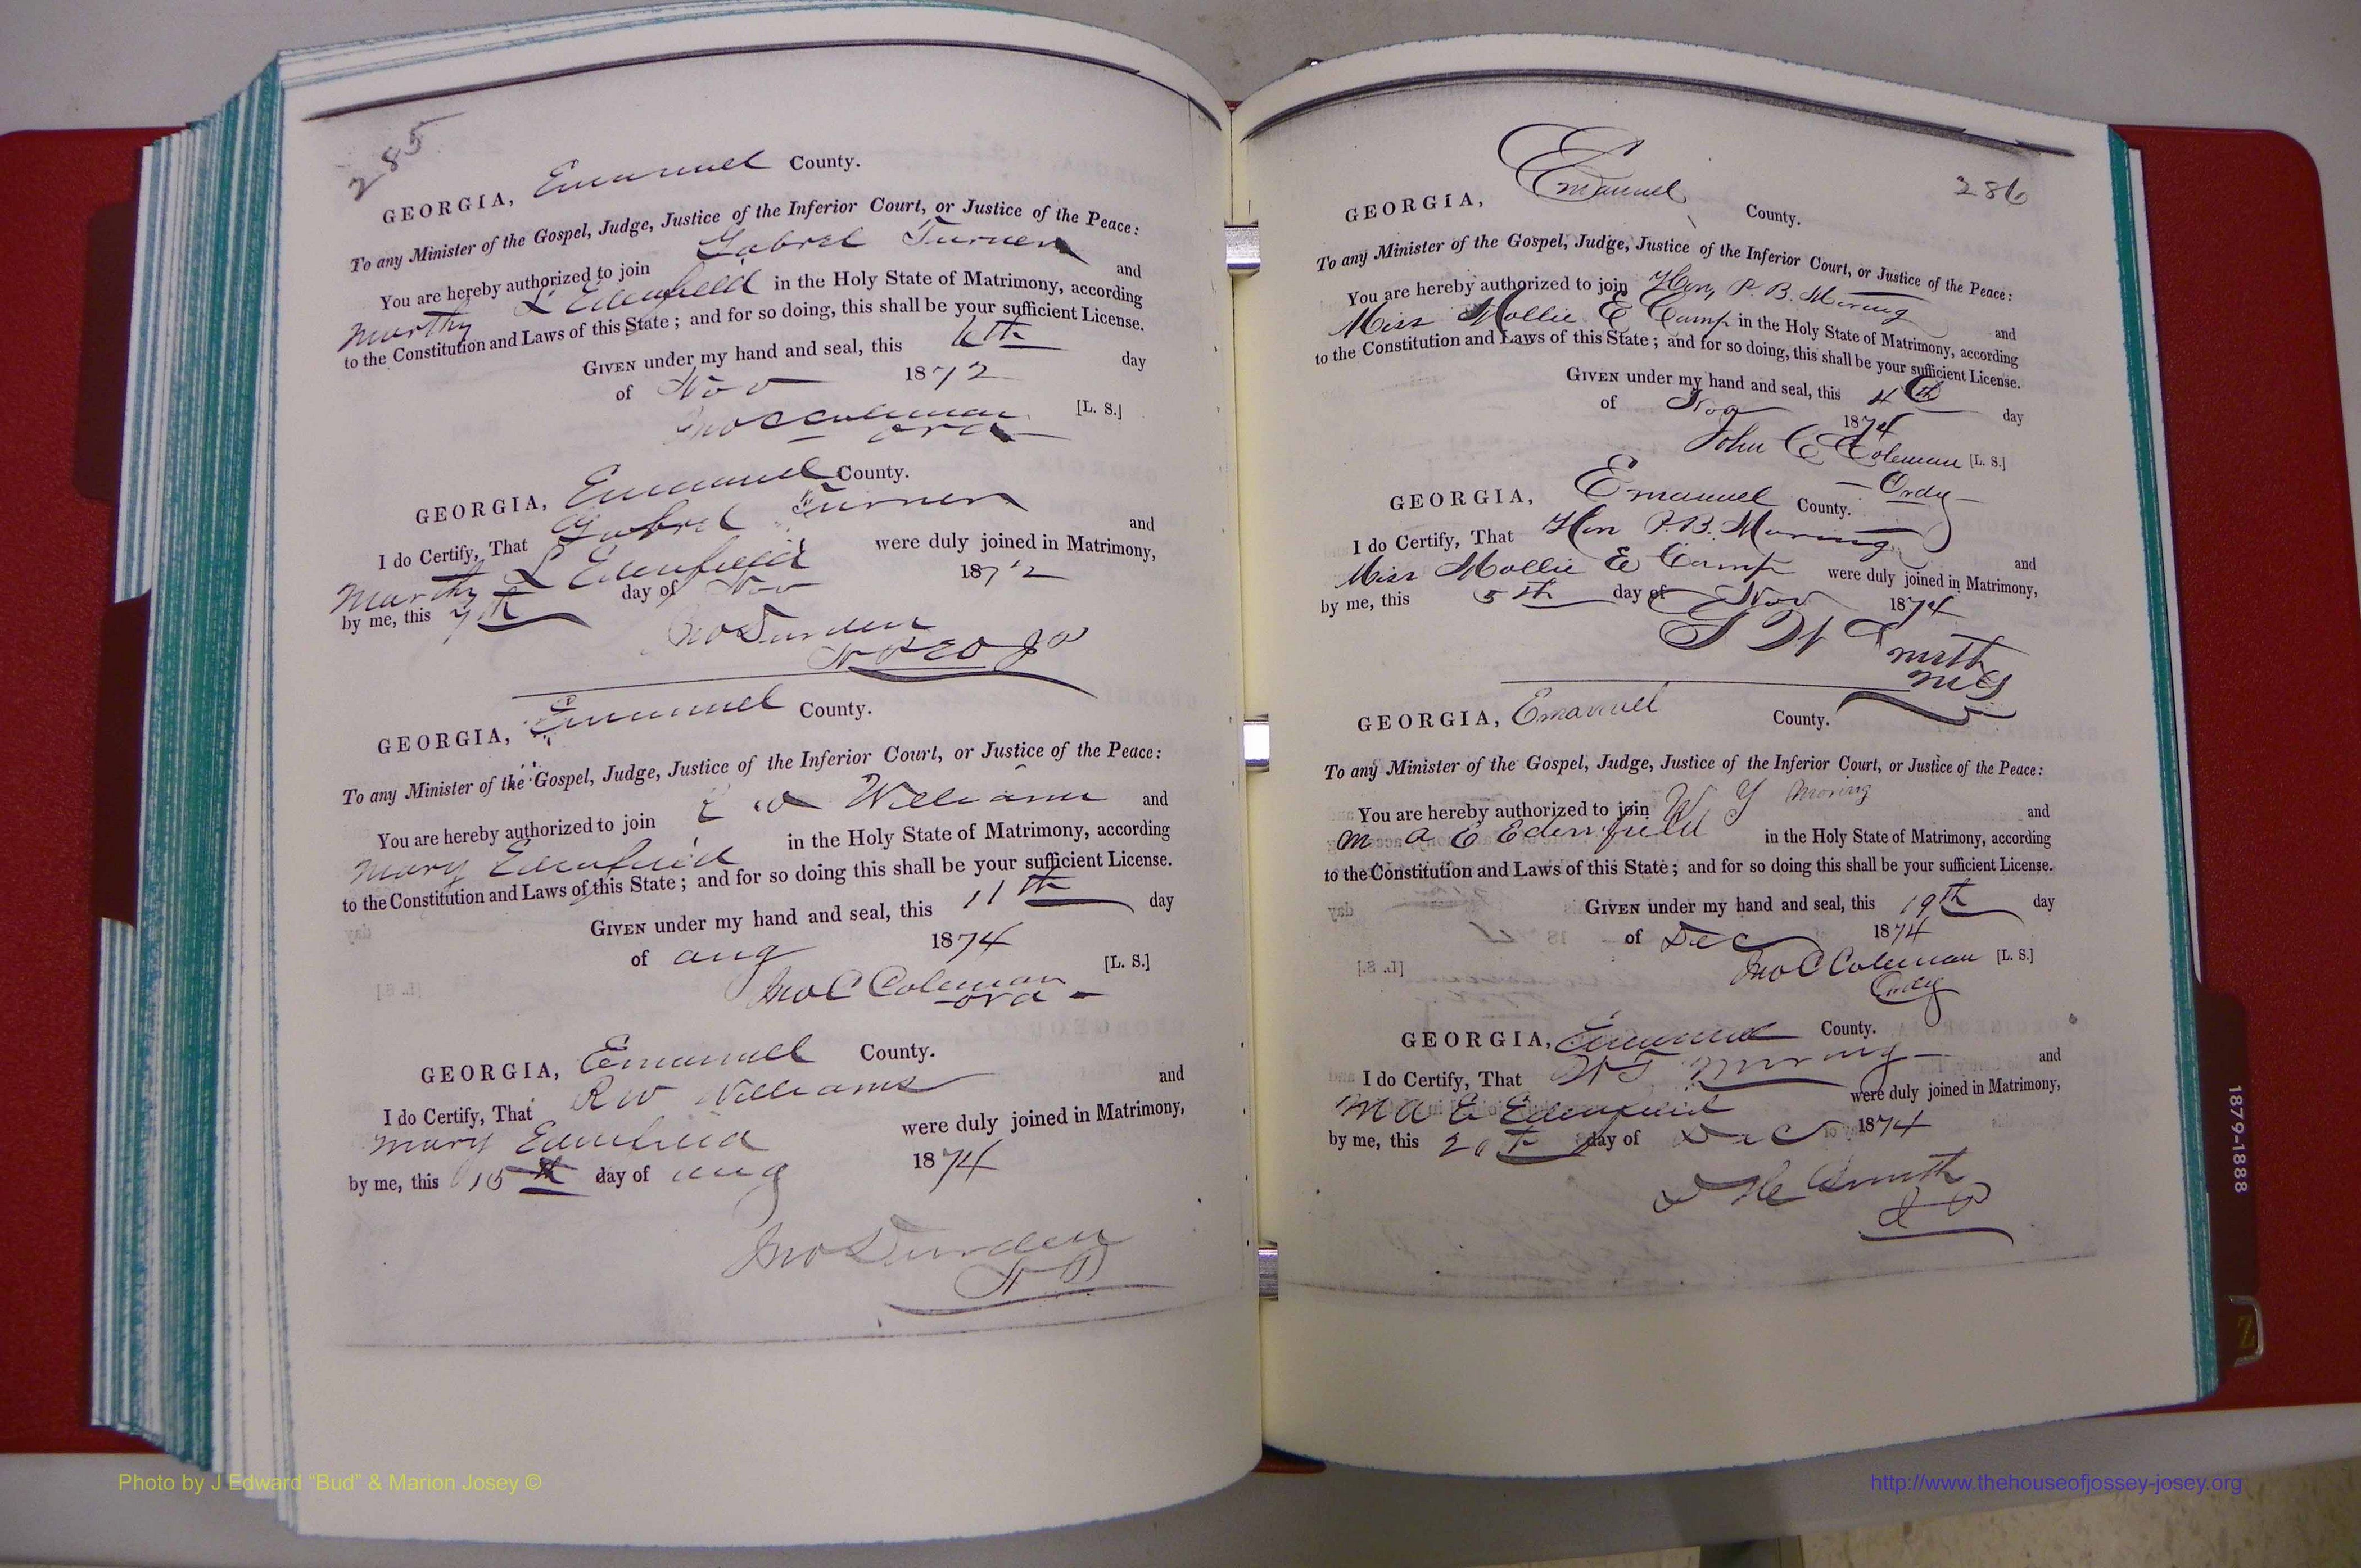 285
GEORGIA, Emanuel County.
To any Minister of the Gospel, Judge, Justice of the Inferior Court, or Justice of the Peace:
You are hereby authorized to join Gabrel Turner and
Marthy L Edenfield in the Holy State of Matrimony, according
to the Constitution and Laws of this State; and for so doing, this shall be your sufficient License.
GIVEN under my hand and seal, this 6th day
of Nov 1872
Jno C Coleman [L. S.]
ord
GEORGIA, Emanuel County.
I do Certify, That Gabrel Turner and
Marthy L Edenfield were duly joined in Matrimony,
by me, this 7th day of Nov 1872
Jno Durden
GEORGIA, Emanuel County.
To any Minister of the Gospel, Judge, Justice of the Inferior Court, or Justice of the Peace:
You are hereby authorized to join Williams and
Mary Edenfield in the Holy State of Matrimony, according
to the Constitution and Laws of this State; and for so doing this shall be your sufficient License.
GIVEN under my hand and seal, this 11th day
of aug 1874
Jno C Coleman [L. S.]
ord
GEORGIA, Emanuel County.
I do Certify, That R W Williams and
Mary Edenfield were duly joined in Matrimony,
by me, this 15th day of aug 1874
Jno Durden
286
GEORGIA, Emanuel County.
To any Minister of the Gospel, Judge, Justice of the Inferior Court, or Justice of the Peace:
You are hereby authorized to join Hon P. B. Moring and
Miss Mollie E Camp in the Holy State of Matrimony, according
to the Constitution and Laws of this State; and for so doing, this shall be your sufficient License.
GIVEN under my hand and seal, this 4th day
of Nov 1874
John C Coleman [L. S.]
Ordy
GEORGIA, Emanuel County.
I do Certify, That Hon P. B. Moring and
Miss Mollie E Camp were duly joined in Matrimony,
by me, this 5th day of Nov 1874
Smith
GEORGIA, Emanuel County.
To any Minister of the Gospel, Judge, Justice of the Inferior Court, or Justice of the Peace:
You are hereby authorized to join Moring and
M A E Edenfield in the Holy State of Matrimony, according
to the Constitution and Laws of this State; and for so doing this shall be your sufficient License.
GIVEN under my hand and seal, this 19th day
of Dec 1874
Jno C Coleman [L. S.]
Ordy
GEORGIA, Emanuel County.
I do Certify, That Moring and
M A E Edenfield were duly joined in Matrimony,
by me, this day of Dec 1874
Smith
1879-1888
Z
Photo by J Edward “Bud” & Marion Josey ©
http://www.thehouseofjossey-josey.org